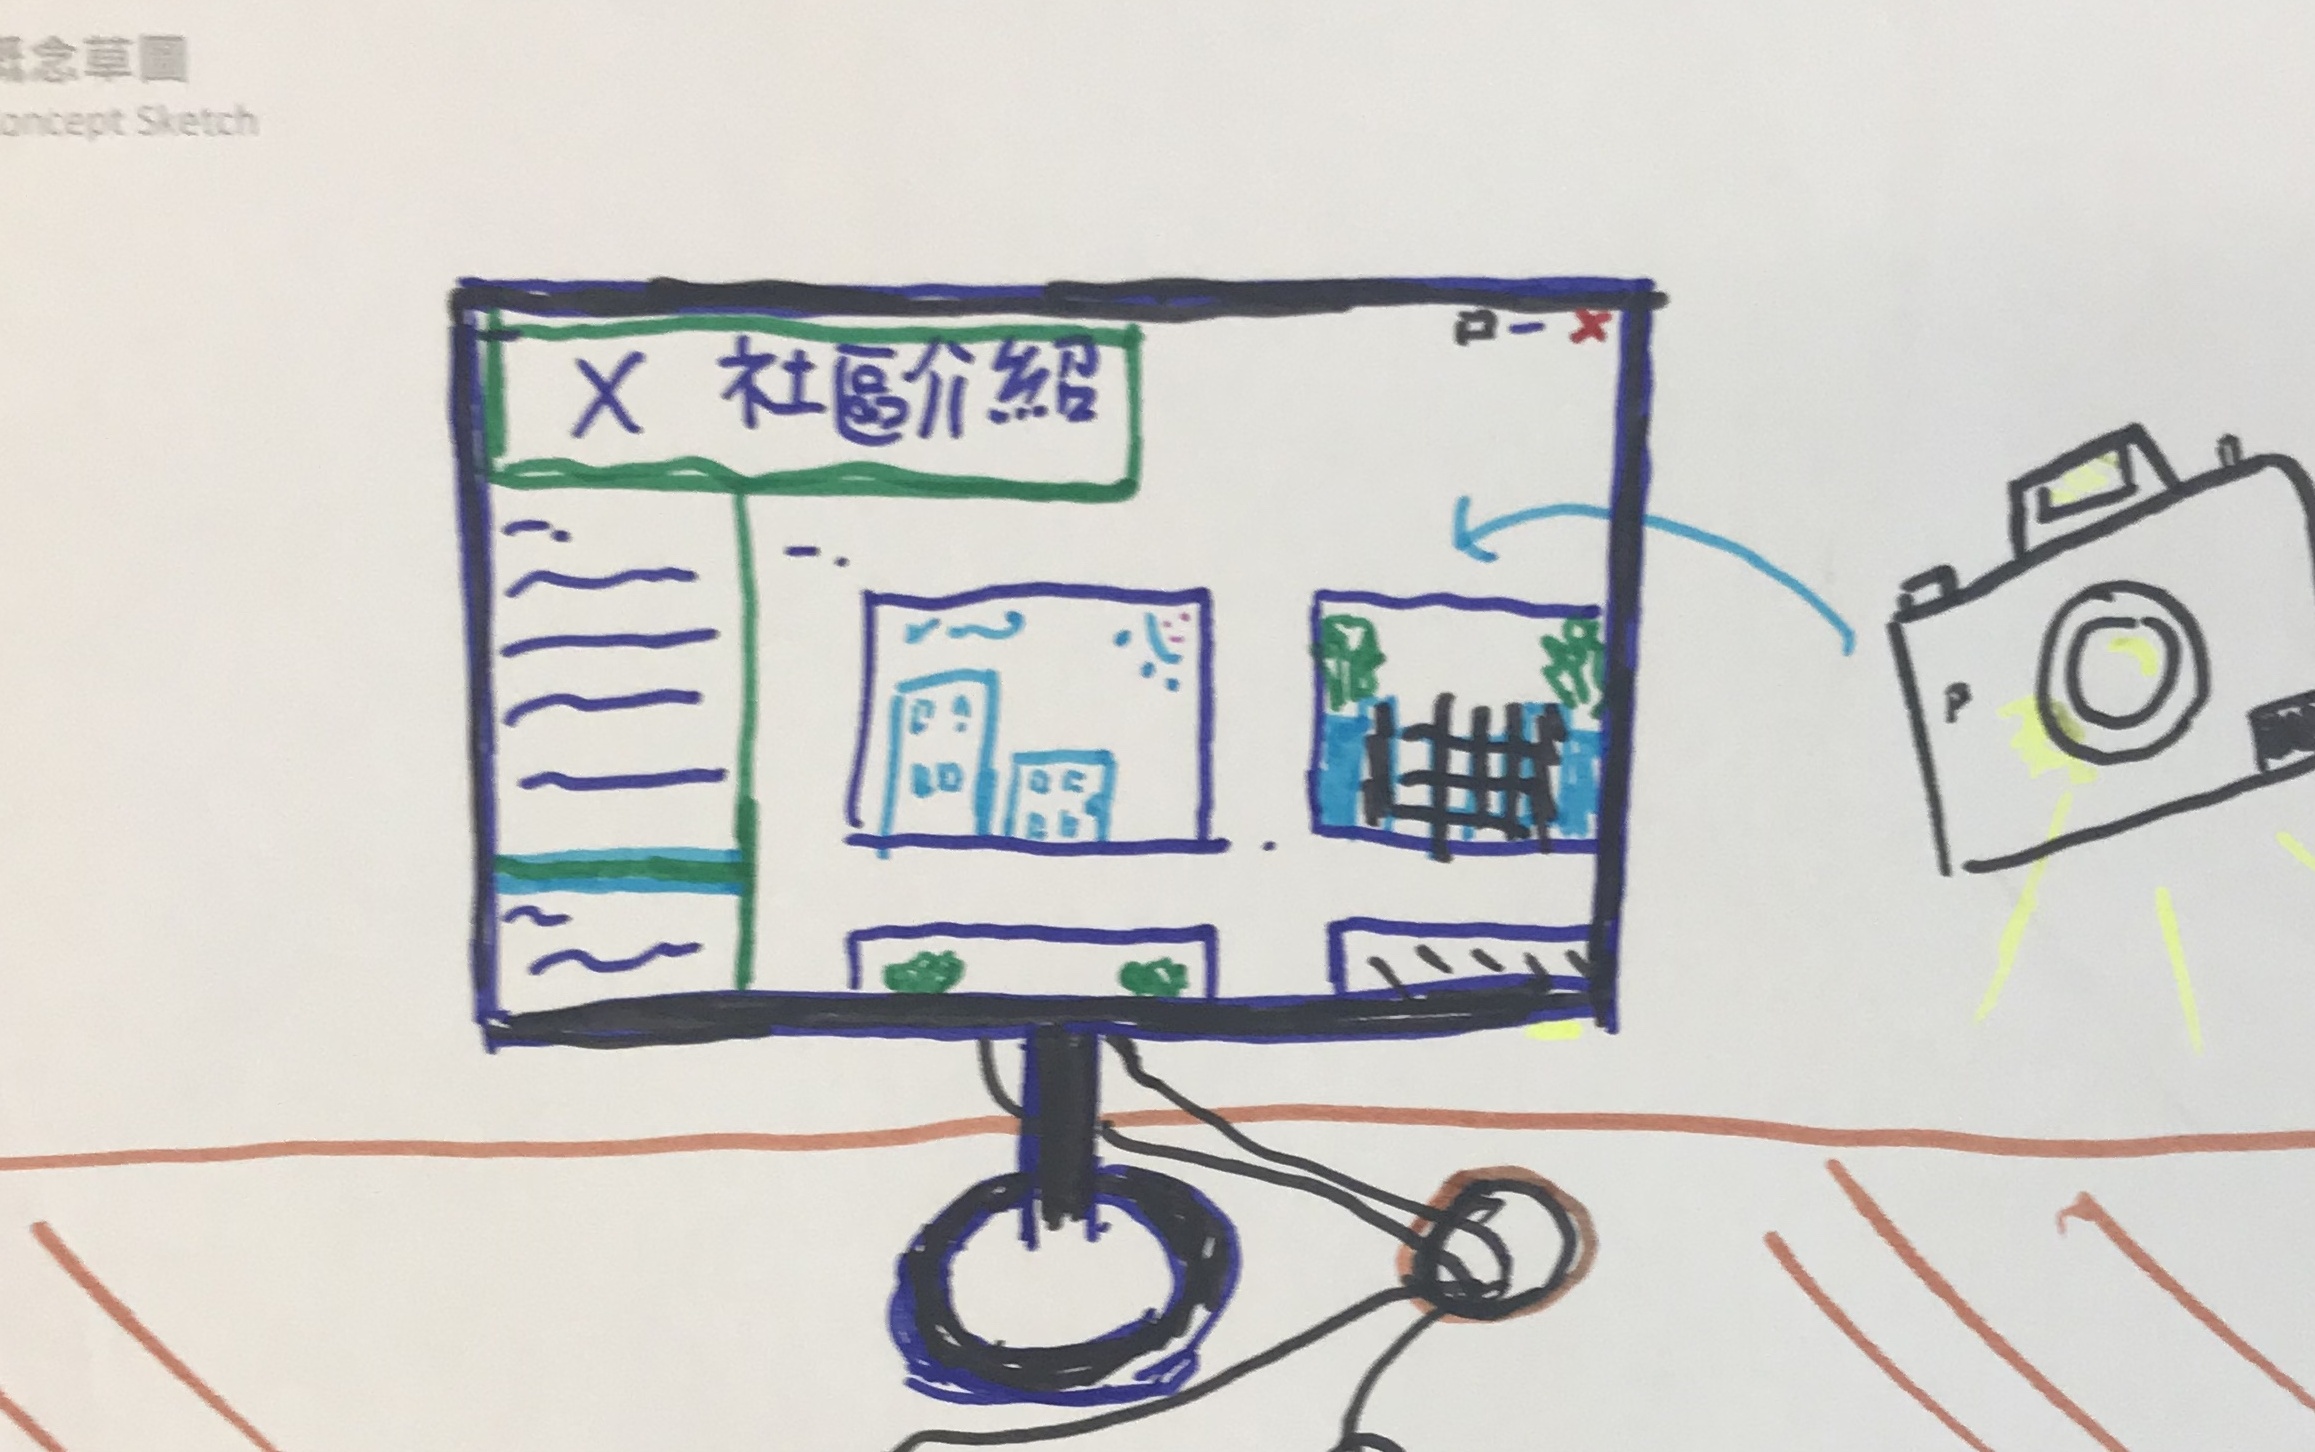 念草圖
oncept Sketch
X 社區介紹
P